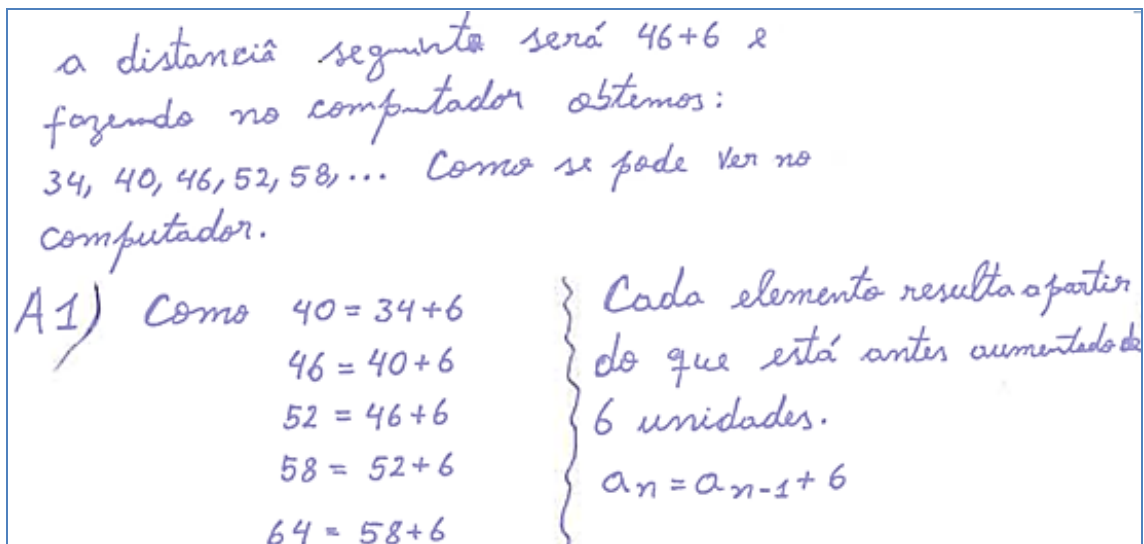 a distanciâ seguinte será 46+6 e
fazendo no computador obtemos:
34, 40, 46, 52, 58, ... Como se pode ver no
computador.
A1) Como 40 = 34+6
46 = 40+6
52 = 46+6
58 = 52+6
64 = 58+6
Cada elemento resulta a partir
do que está antes aumentado de
6 unidades.
aₙ = aₙ₋₁ + 6